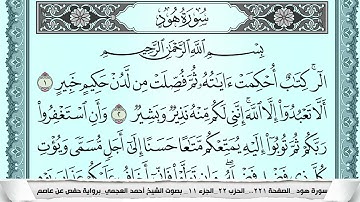 سُورَةُ هُودٍ
بِسْمِ ٱللَّهِ ٱلرَّحْمَٰنِ ٱلرَّحِيمِ
الٓر ۚ كِتَٰبٌ أُحْكِمَتْ ءَايَٰتُهُۥ ثُمَّ فُصِّلَتْ مِن لَّدُنْ حَكِيمٍ خَبِيرٍ ١
أَلَّا تَعْبُدُوٓا۟ إِلَّا ٱللَّهَ ۚ إِنَّنِى لَكُم مِّنْهُ نَذِيرٌ وَبَشِيرٌ ٢ وَأَنِ ٱسْتَغْفِرُوا۟
رَبَّكُمْ ثُمَّ تُوبُوٓا۟ إِلَيْهِ يُمَتِّعْكُم مَّتَٰعًا حَسَنًا إِلَىٰٓ أَجَلٍ مُّسَمًّى وَيُؤْتِ
سورة هود _ الصفحة ٢٢١ _ الحزب ٢٢ _ الجزء ١١ _ بصوت الشيخ أحمد العجمي _ برواية حفص عن عاصم